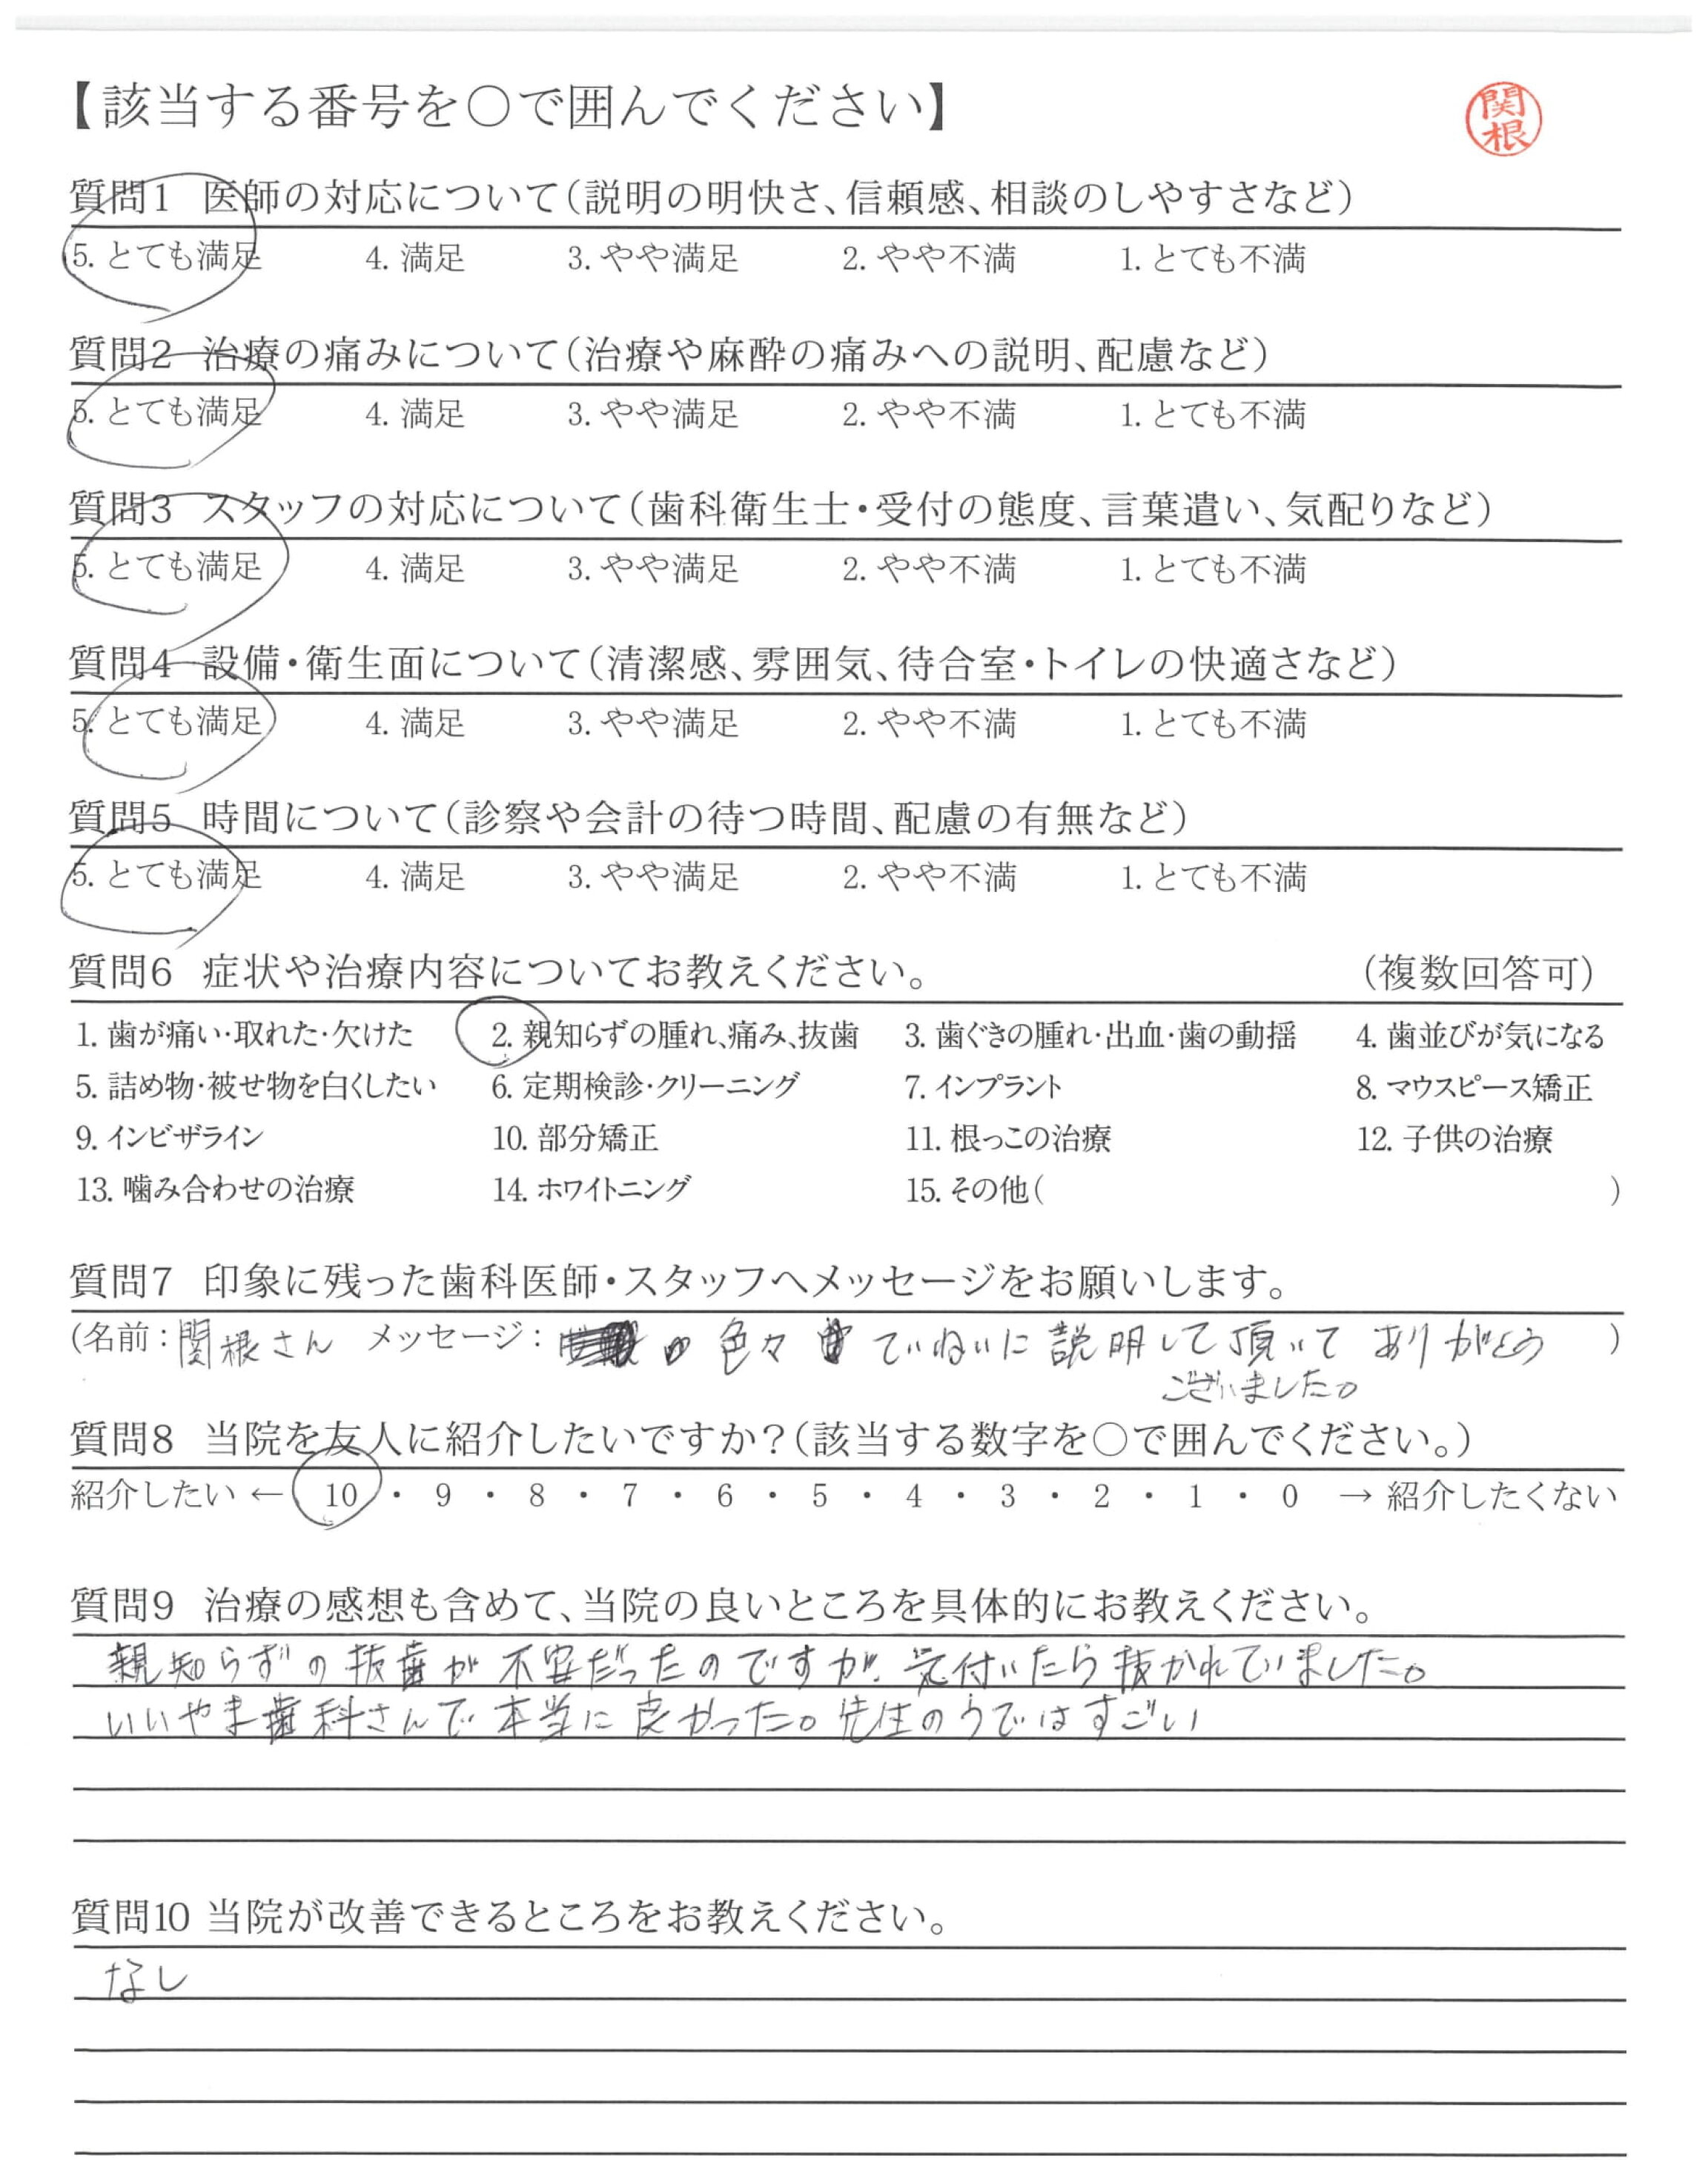 【該当する番号を○で囲んでください】
関根
質問1 医師の対応について（説明の明快さ、信頼感、相談のしやすさなど）
5. とても満足 4. 満足 3. やや満足 2. やや不満 1. とても不満
質問2 治療の痛みについて（治療や麻酔の痛みへの説明、配慮など）
5. とても満足 4. 満足 3. やや満足 2. やや不満 1. とても不満
質問3 スタッフの対応について（歯科衛生士・受付の態度、言葉遣い、気配りなど）
5. とても満足 4. 満足 3. やや満足 2. やや不満 1. とても不満
質問4 設備・衛生面について（清潔感、雰囲気、待合室・トイレの快適さなど）
5. とても満足 4. 満足 3. やや満足 2. やや不満 1. とても不満
質問5 時間について（診察や会計の待つ時間、配慮の有無など）
5. とても満足 4. 満足 3. やや満足 2. やや不満 1. とても不満
質問6 症状や治療内容についてお教えください。 （複数回答可）
1. 歯が痛い・取れた・欠けた 2. 親知らずの腫れ、痛み、抜歯 3. 歯ぐきの腫れ・出血・歯の動揺 4. 歯並びが気になる
5. 詰め物・被せ物を白くしたい 6. 定期検診・クリーニング 7. インプラント 8. マウスピース矯正
9. インビザライン 10. 部分矯正 11. 根っこの治療 12. 子供の治療
13. 噛み合わせの治療 14. ホワイトニング 15. その他（ ）
質問7 印象に残った歯科医師・スタッフへメッセージをお願いします。
（名前：関根さん メッセージ： 色々 ていねいに説明して頂いてありがとう ）
ございました。
質問8 当院を友人に紹介したいですか？（該当する数字を○で囲んでください。）
紹介したい ← 10 ・ 9 ・ 8 ・ 7 ・ 6 ・ 5 ・ 4 ・ 3 ・ 2 ・ 1 ・ 0 → 紹介したくない
質問9 治療の感想も含めて、当院の良いところを具体的にお教えください。
親知らずの抜歯が不安だったのですが、気付いたら抜かれていました。
いいやま歯科さんで本当に良かった。先生のうではすごい
質問10 当院が改善できるところをお教えください。
なし